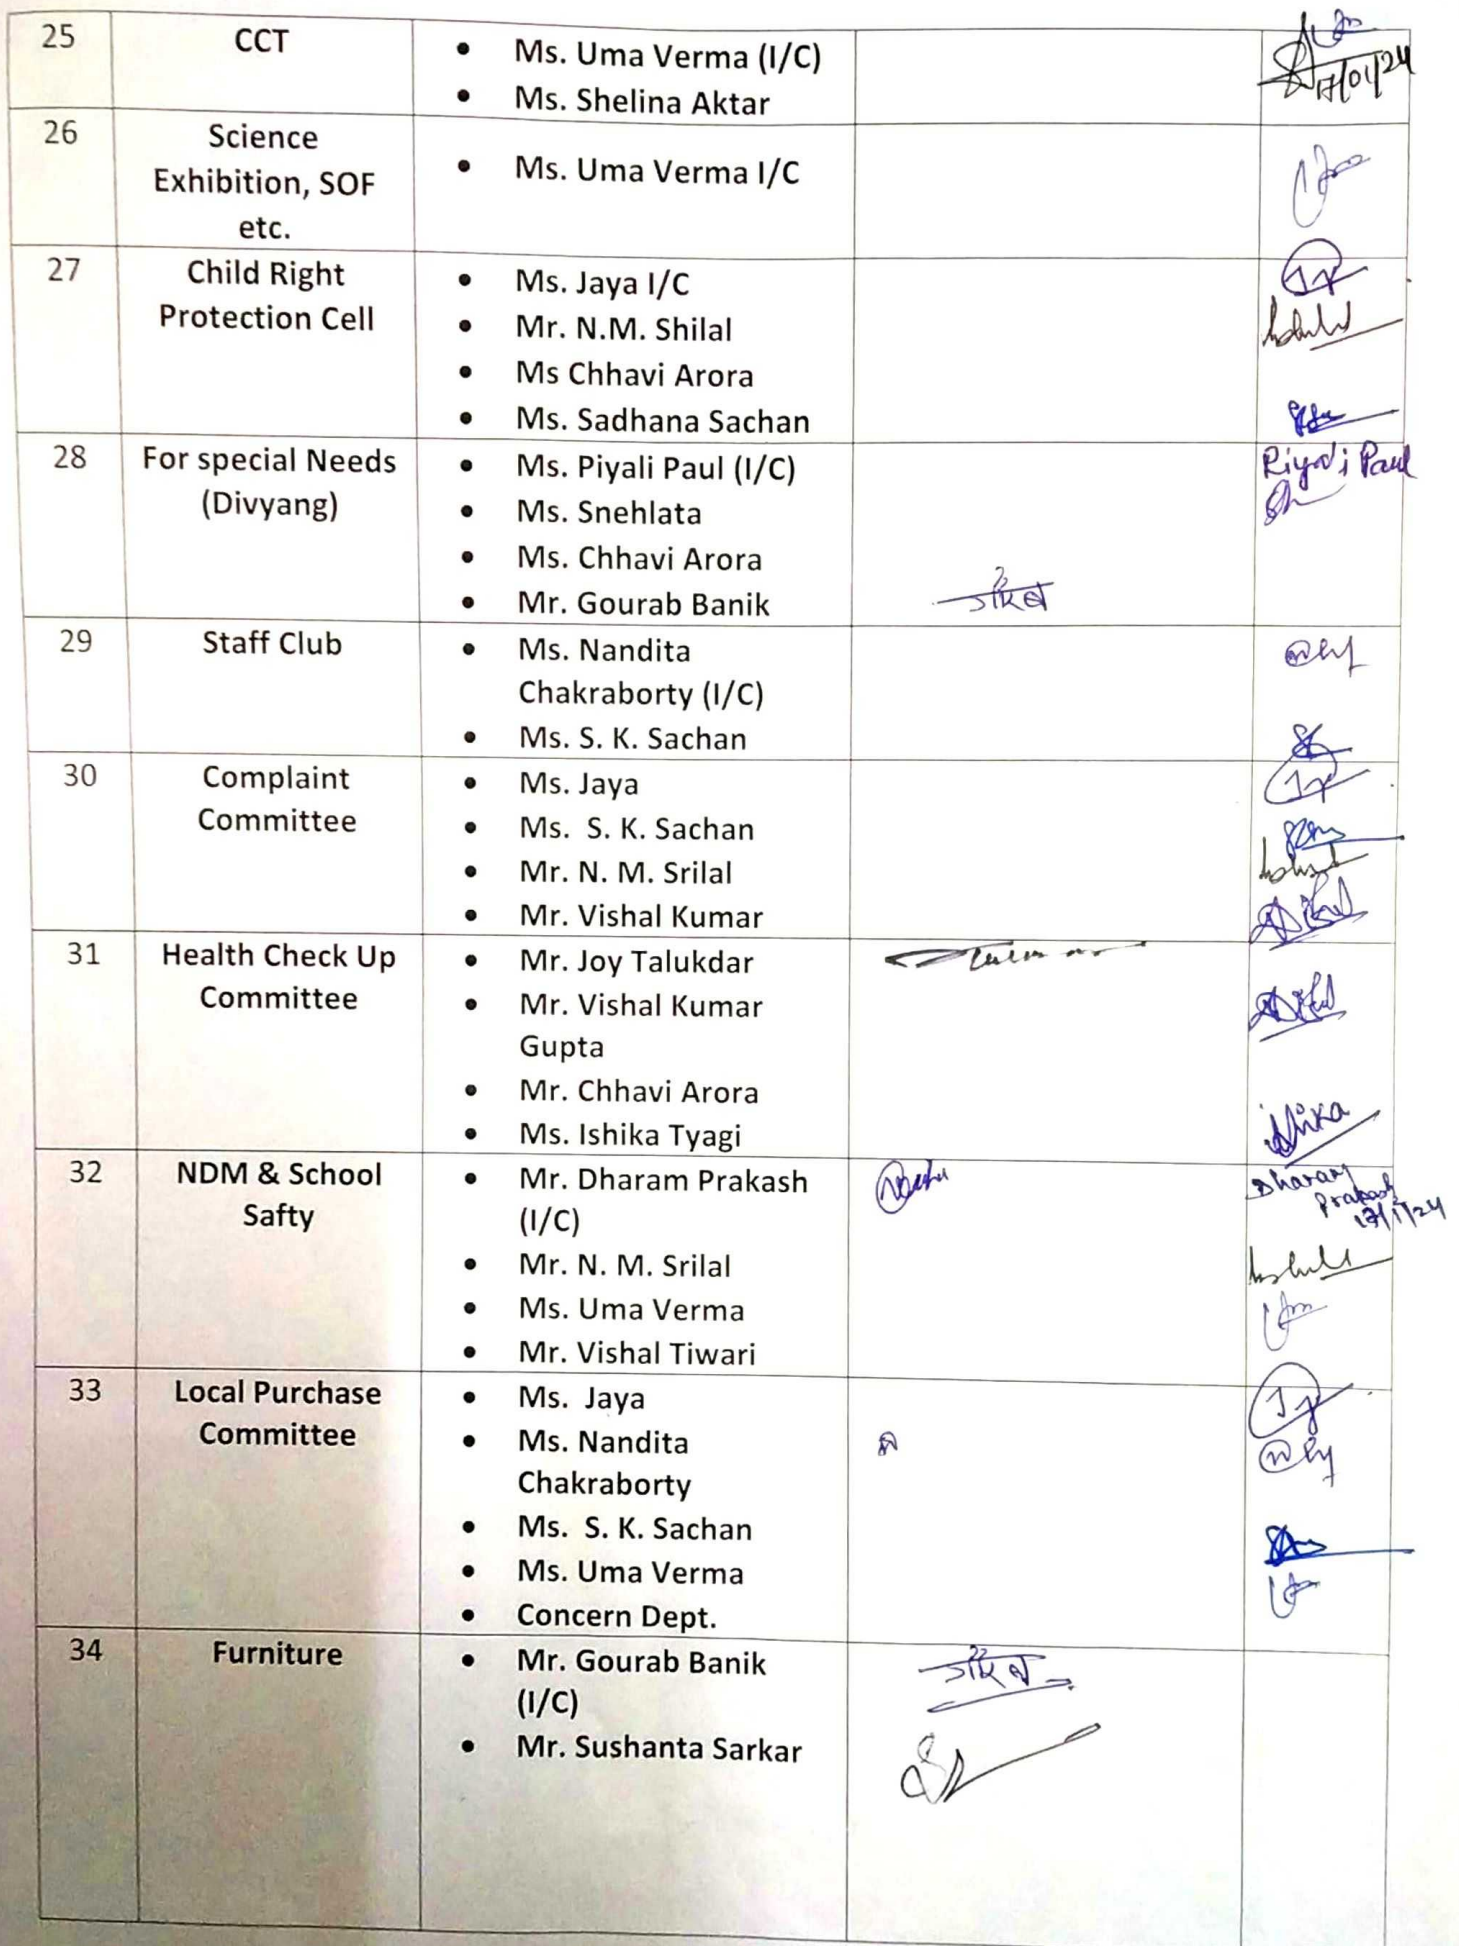 25
CCT
• Ms. Uma Verma (I/C)
• Ms. Shelina Aktar
17/01/24
26
Science
Exhibition, SOF
etc.
• Ms. Uma Verma I/C
27
Child Right
Protection Cell
• Ms. Jaya I/C
• Mr. N.M. Shilal
• Ms Chhavi Arora
• Ms. Sadhana Sachan
28
For special Needs
(Divyang)
• Ms. Piyali Paul (I/C)
• Ms. Snehlata
• Ms. Chhavi Arora
• Mr. Gourab Banik
गौरव
Piyali Paul
29
Staff Club
• Ms. Nandita
Chakraborty (I/C)
• Ms. S. K. Sachan
30
Complaint
Committee
• Ms. Jaya
• Ms. S. K. Sachan
• Mr. N. M. Srilal
• Mr. Vishal Kumar
31
Health Check Up
Committee
• Mr. Joy Talukdar
• Mr. Vishal Kumar
Gupta
• Mr. Chhavi Arora
• Ms. Ishika Tyagi
Ishika
32
NDM & School
Safty
• Mr. Dharam Prakash
(I/C)
• Mr. N. M. Srilal
• Ms. Uma Verma
• Mr. Vishal Tiwari
Dharam
Prakash
17/1/24
33
Local Purchase
Committee
• Ms. Jaya
• Ms. Nandita
Chakraborty
• Ms. S. K. Sachan
• Ms. Uma Verma
• Concern Dept.
34
Furniture
• Mr. Gourab Banik
(I/C)
• Mr. Sushanta Sarkar
गौरव